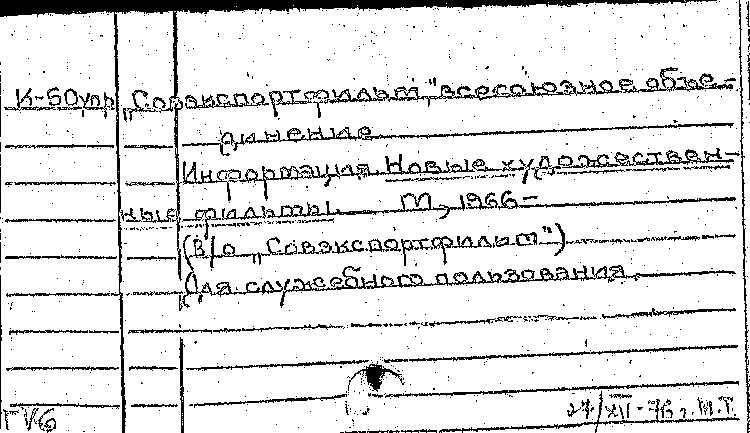 К-50упр „Совэкспортфильм," всесоюзное объе-
динение
Информация. Новые художествен-
ные фильмы. М., 1966-
(В/о „Совэкспортфильм")
Для служебного пользования.
27/XII-76г. М.Т.